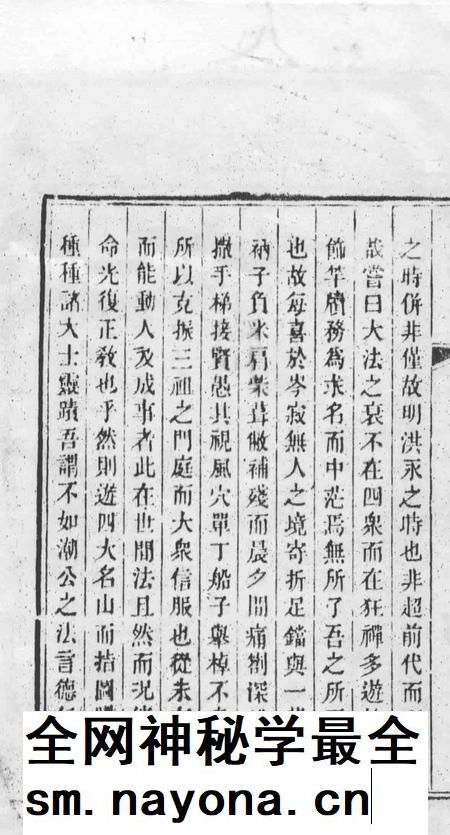 之時併非僅故明洪永之時也非超前代而
哉嘗曰大法之衰不在四衆而在狂禪多遊
飾竿牘務為求名而中茫焉無所了吾之所
也故每喜於岑寂無人之境寄折足鐺與一
衲子負米肩柴葺敝補殘而晨夕間痛劄深
撒手梯接賢愚其視風穴單丁船子舉棹不
所以克振三祖之門庭而大衆信服也從未
而能動人及成事者此在世間法且然而況
命光復正教也乎然則遊四大名山而指圖
種種諸大士靈蹟吾謂不如潮公之法言德
全网神秘学最全
sm.nayona.cn